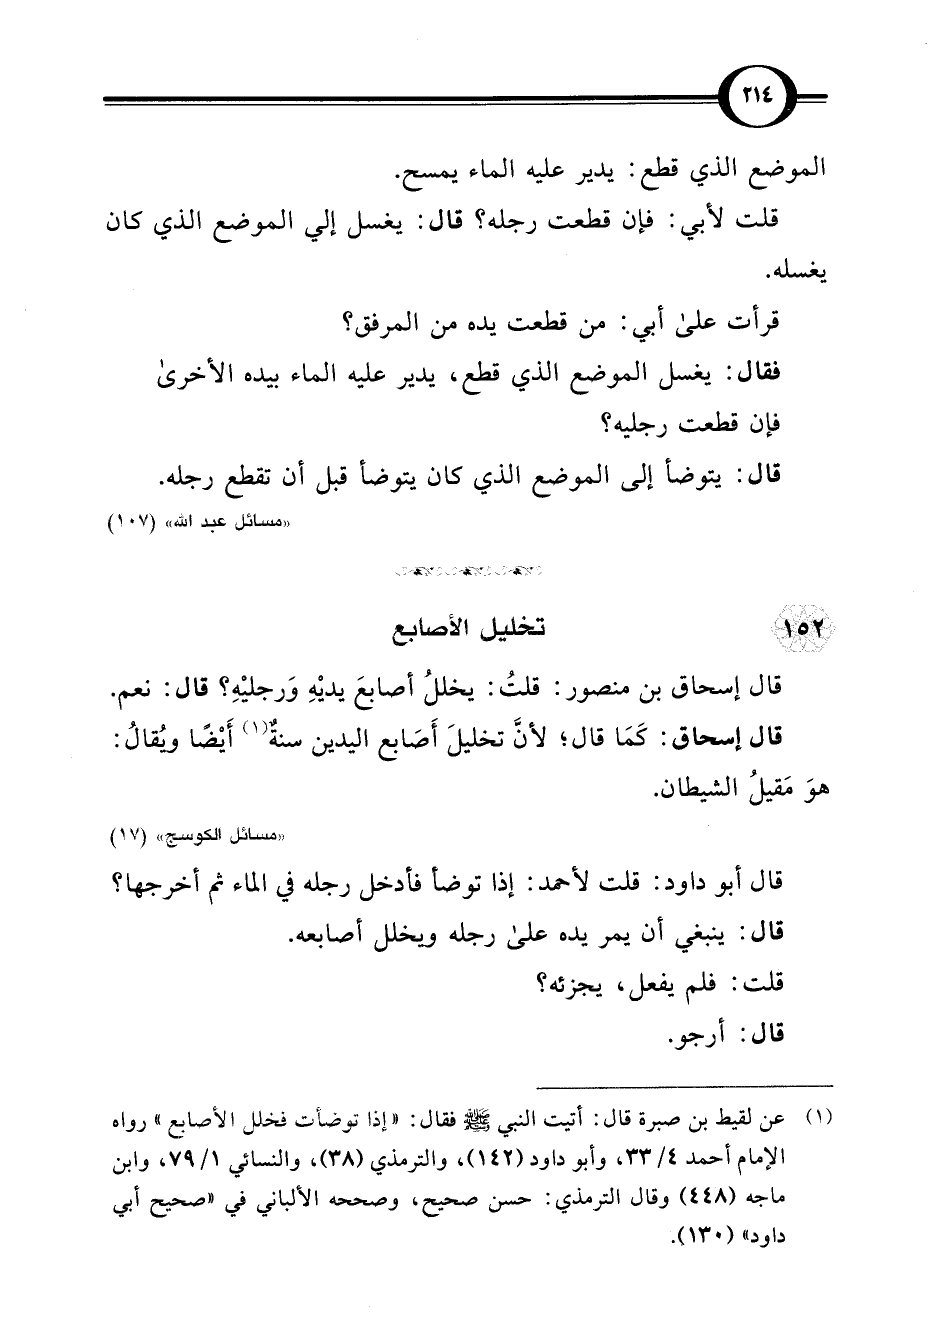 ٢١٤
الموضع الذي قطع: يدير عليه الماء يمسح.
قلت لأبي: فإن قطعت رجله؟ قال: يغسل إلي الموضع الذي كان
يغسله.
قرأت علىٰ أبي: من قطعت يده من المرفق؟
فقال: يغسل الموضع الذي قطع، يدير عليه الماء بيده الأخرىٰ
فإن قطعت رجليه؟
قال: يتوضأ إلى الموضع الذي كان يتوضأ قبل أن تقطع رجله.
«مسائل عبد الله» (١٠٧)
١٥٢ تخليل الأصابع
قال إسحاق بن منصور: قلتُ: يخللُ أصابعَ يديْهِ وَرجليْهِ؟ قال: نعم.
قال إسحاق: كَمَا قال؛ لأنَّ تخليلَ أَصَابع اليدين سنةٌ(١) أَيْضًا ويُقالُ:
هوَ مَقيلُ الشيطان.
«مسائل الكوسج» (١٧)
قال أبو داود: قلت لأحمد: إذا توضأ فأدخل رجله في الماء ثم أخرجها؟
قال: ينبغي أن يمر يده علىٰ رجله ويخلل أصابعه.
قلت: فلم يفعل، يجزئه؟
قال: أرجو.
(١) عن لقيط بن صبرة قال: أتيت النبي ﷺ فقال: «إذا توضأت فخلل الأصابع» رواه
الإمام أحمد ٤/ ٣٣، وأبو داود (١٤٢)، والترمذي (٣٨)، والنسائي ١/ ٧٩، وابن
ماجه (٤٤٨) وقال الترمذي: حسن صحيح، وصححه الألباني في «صحيح أبي
داود» (١٣٠).